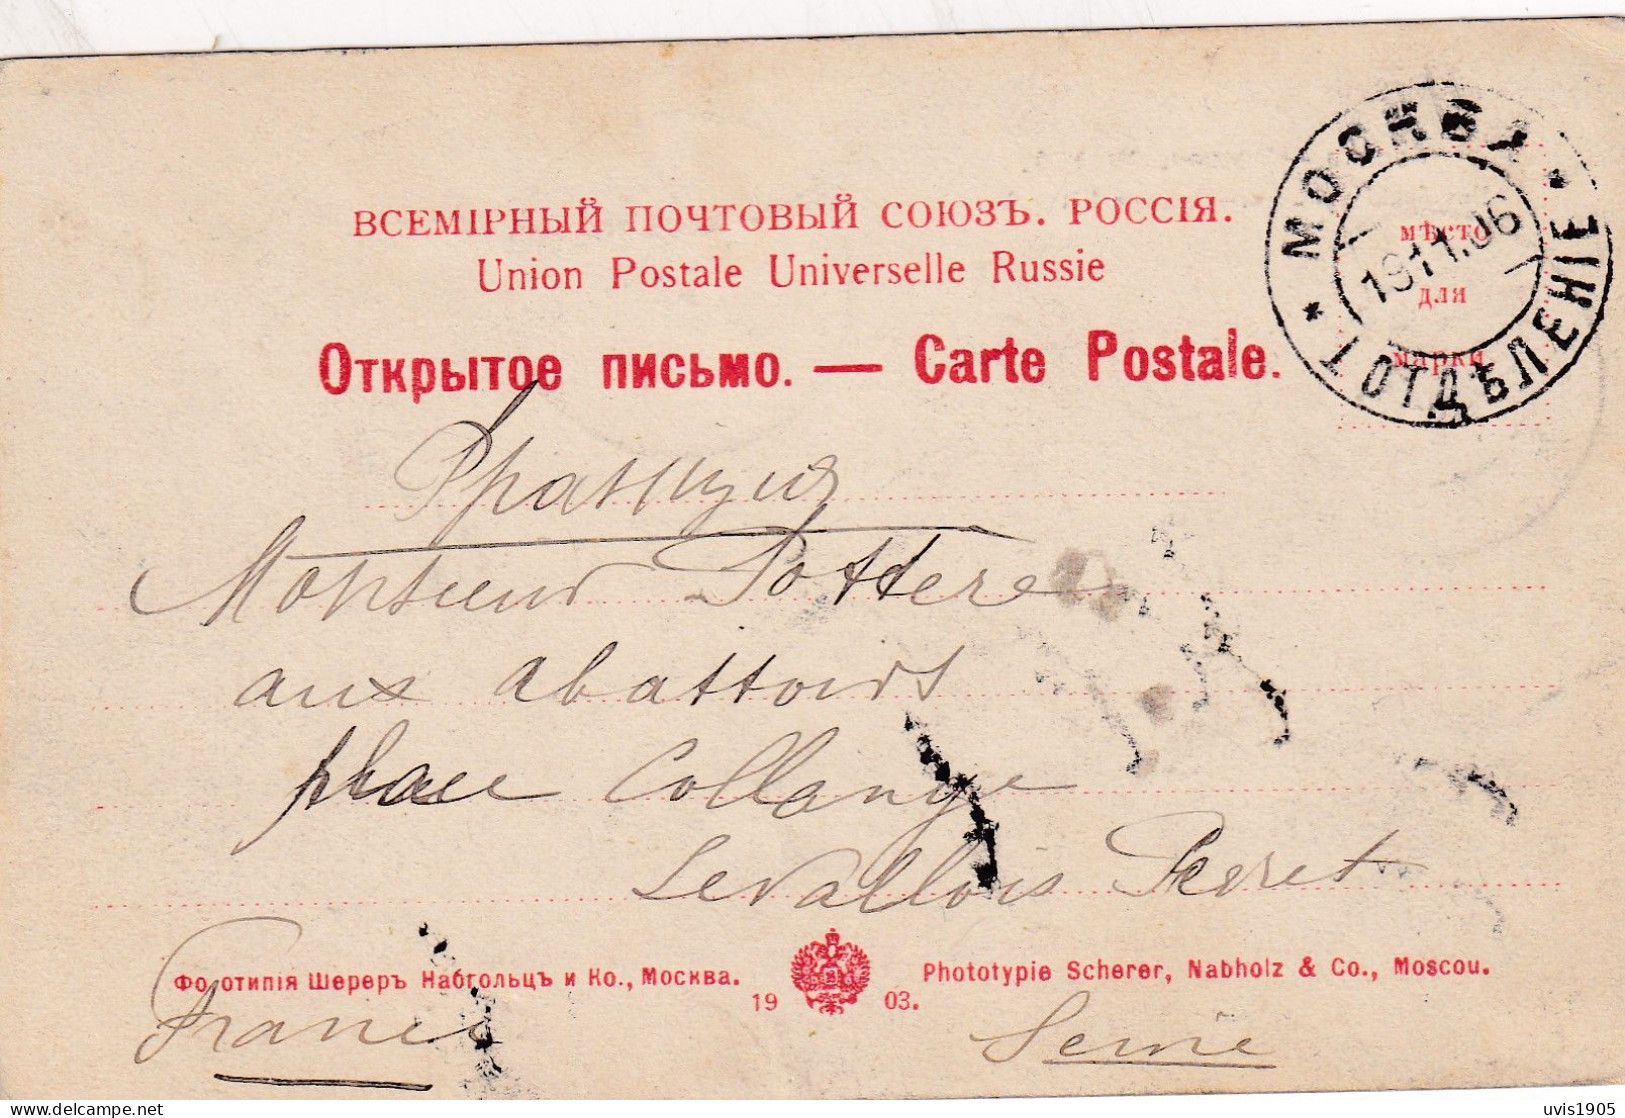 ВСЕМІРНЫЙ ПОЧТОВЫЙ СОЮЗЪ. РОССІЯ.
Union Postale Universelle Russie
Открытое письмо. — Carte Postale.
МОСКВА
19.11.06
ОТДѢЛЕНІЕ
мѣсто
для
марки
Франція
Monsieur Pottere
aux abattoirs
place Collange
Levallois Perret
Фототипія Шереръ Набгольцъ и Ко., Москва.
1903.
Phototypie Scherer, Nabholz & Co., Moscou.
France
Seine
uvis1905